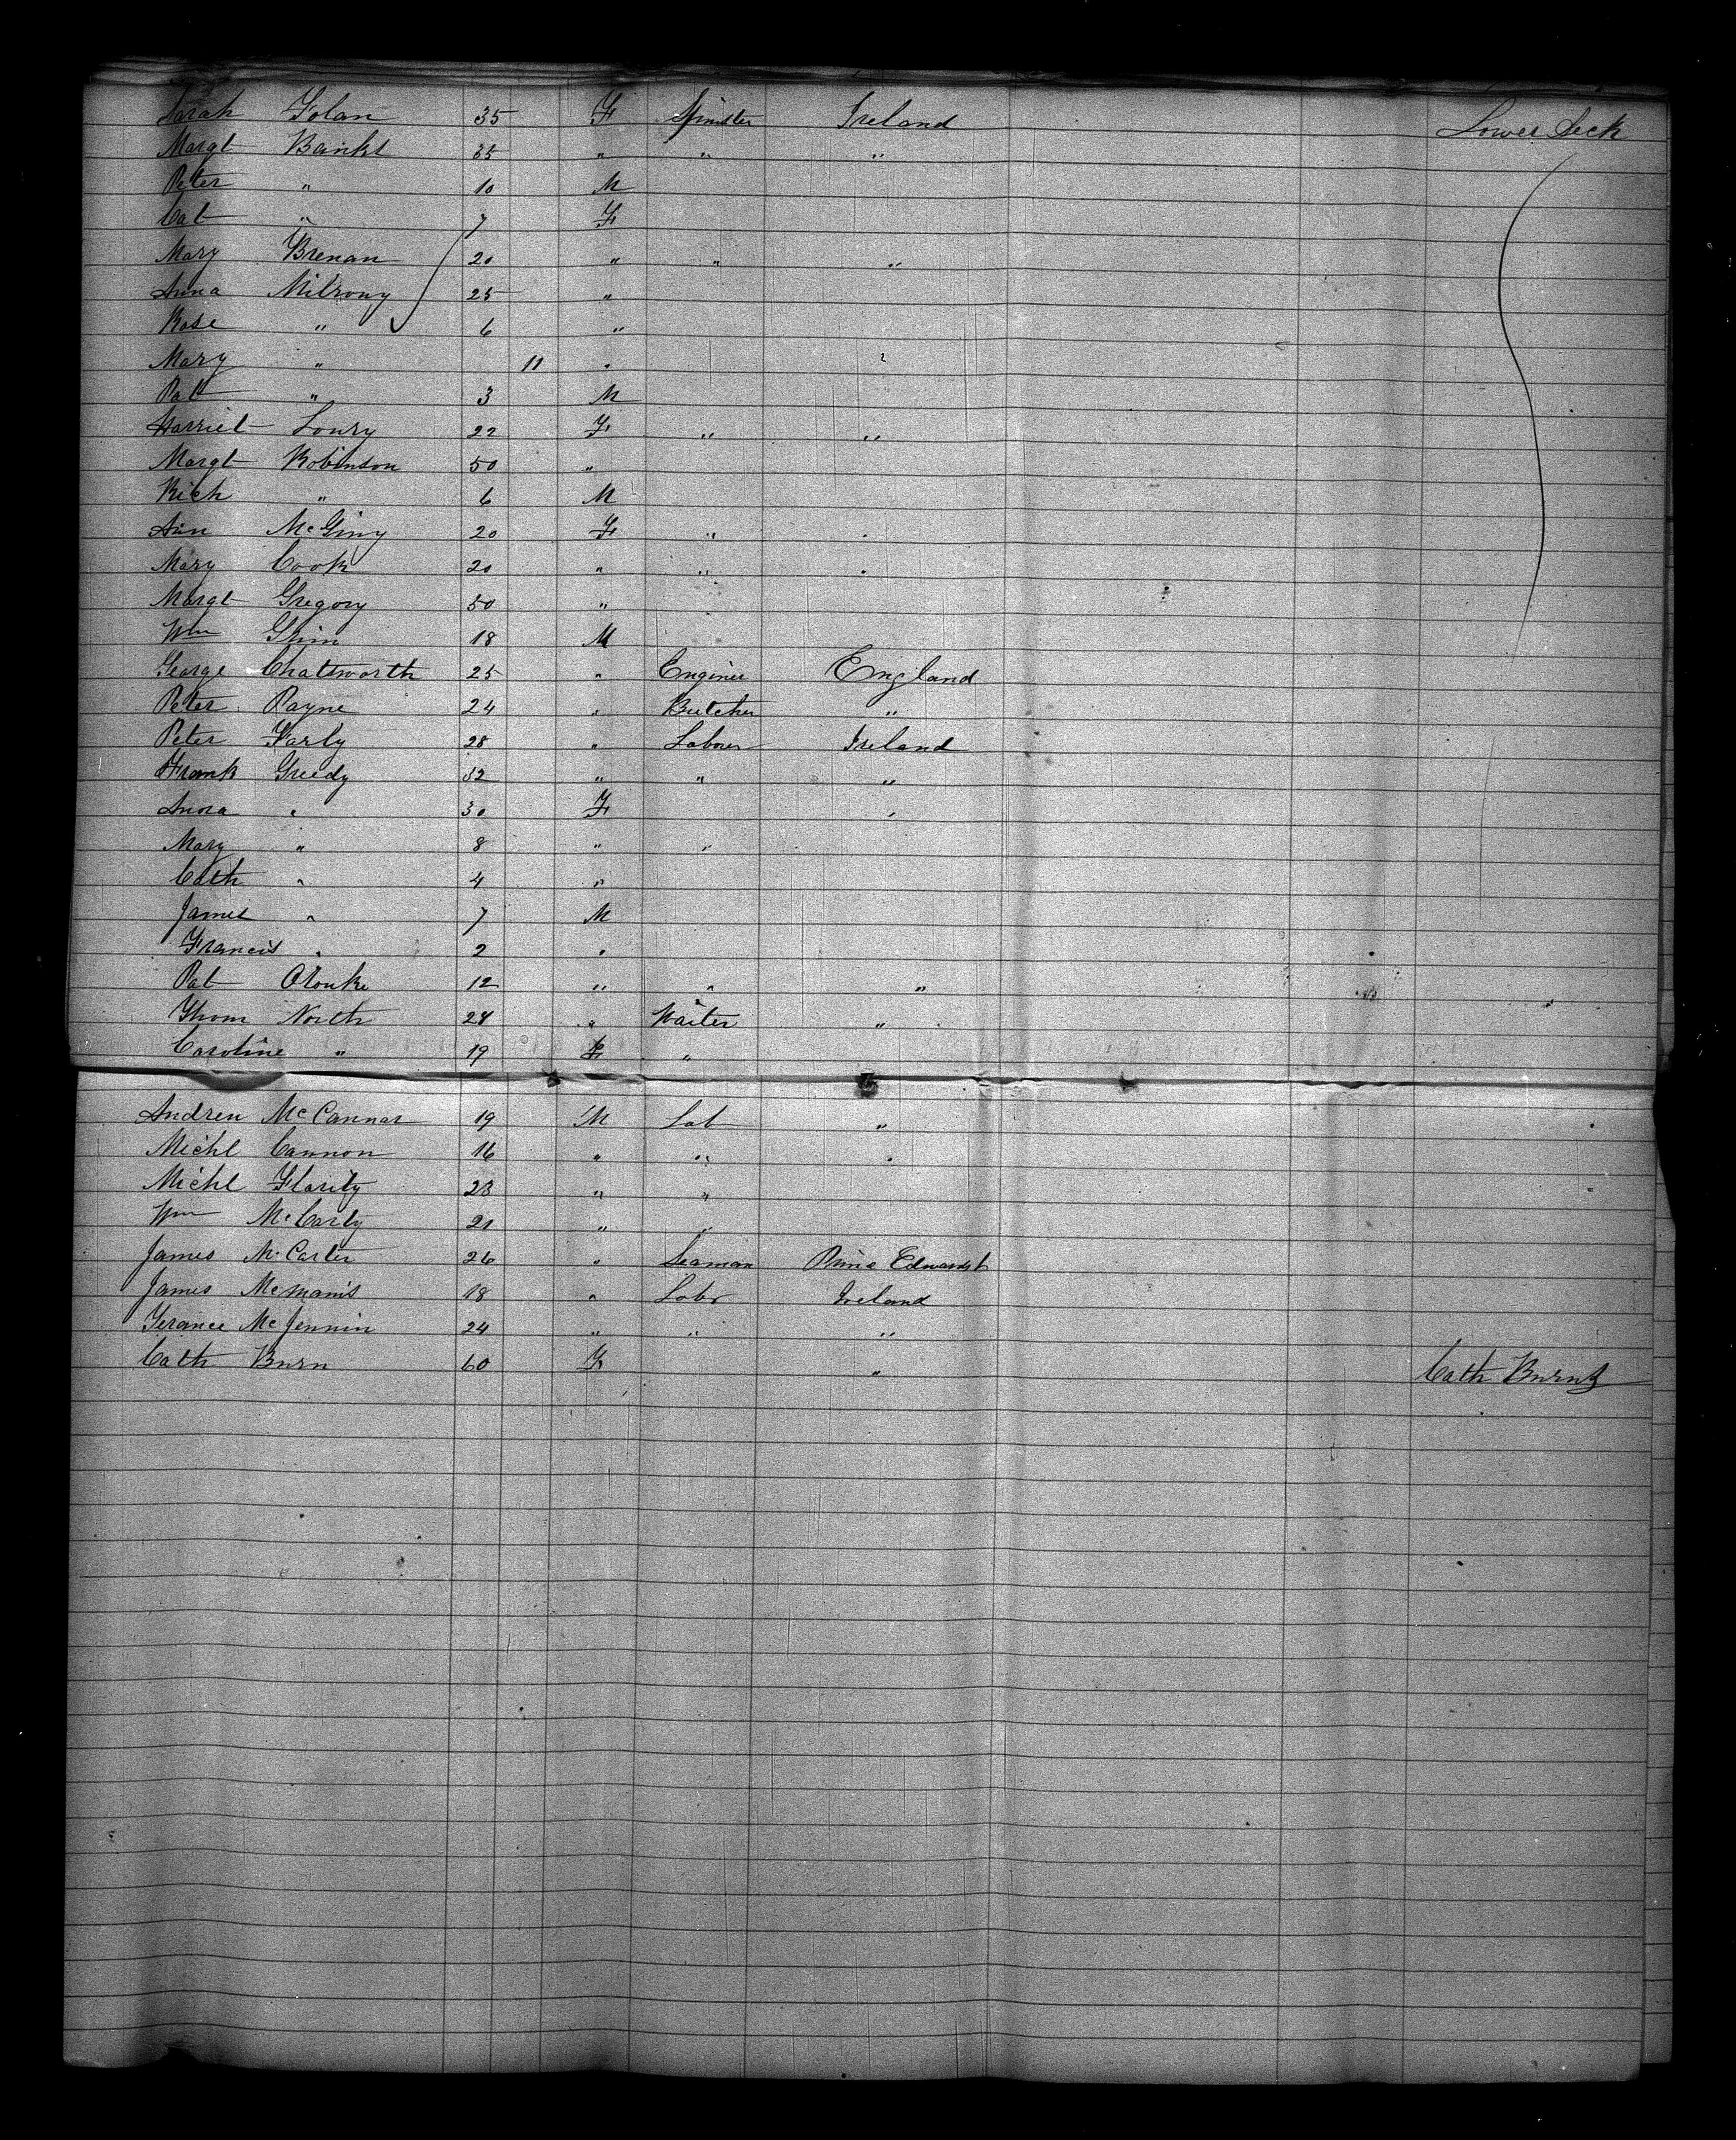 Sarah Folan 35 F Spinster Ireland Lower Deck
Margt Banks 35 " " "
Peter " 10 M
Cat " 7 F
Mary Brenan 20 " " "
Anna Milrony 25 "
Rose " 6 "
Mary " 11 "
Pat " 3 M
Harriet Lowry 22 F " "
Margt Robinson 50 "
Rich " 6 M
Ann McGiny 20 F " "
Mary Cook 20 " " "
Margt Gregory 50 "
Wm Grim 18 M
George Chatsworth 25 " Enginer England
Peter Payne 24 " Butcher "
Peter Farly 28 " Laborer Ireland
Frank Greedy 32 " " "
Anora " 30 F "
Mary " 8 " "
Cath " 4 "
James " 7 M
Francis " 2 "
Pat ORouke 12 " " "
Thom North 24 " Waiter "
Caroline " 19 F "
Andrew McCannar 19 M Lab "
Michl Cannon 16 " " "
Michl Flarity 23 " "
Wm McCarty 21 " "
James McCarter 26 " Seaman Prince Edwards I
James Mcmanis 18 " Labr Ireland
Terance McJennin 24 " " "
Cath Burn 60 F " Cath Burns